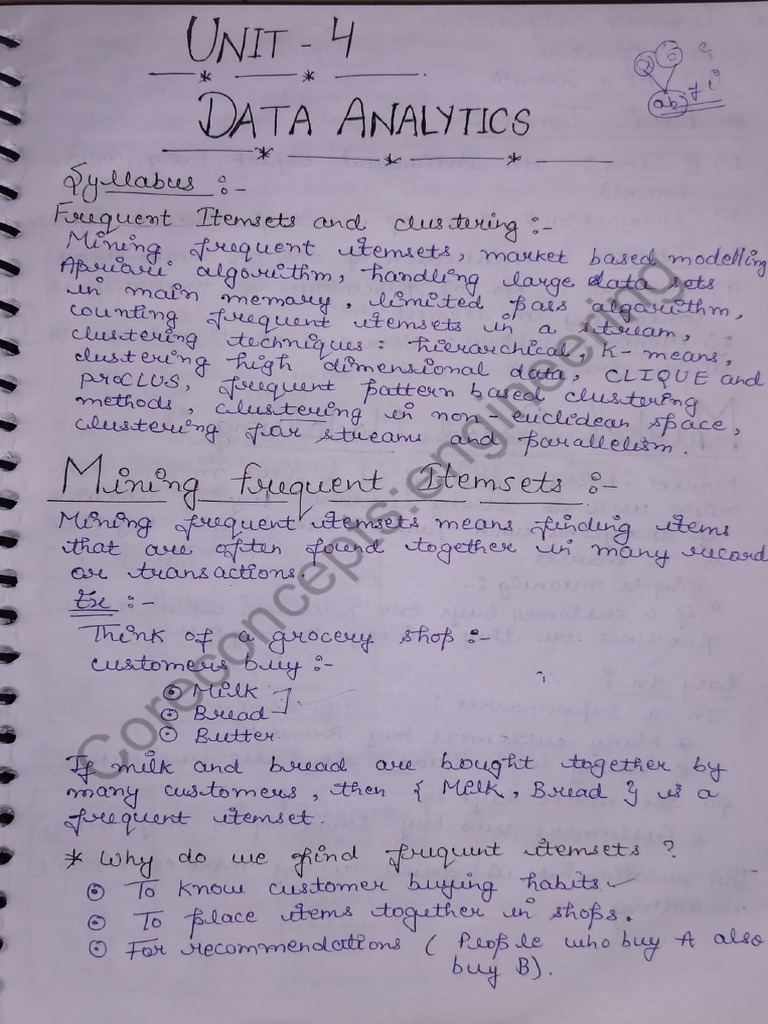 UNIT - 4
DATA ANALYTICS
Syllabus :-
Frequent Itemsets and clustering :-
Mining frequent itemsets, market based modelling
Apriori algorithm, handling large data sets
in main memory, limited pass algorithm,
counting frequent itemsets in a stream,
clustering techniques: hierarchical, K-means,
clustering high dimensional data, CLIQUE and
PROCLUS, frequent pattern based clustering
methods, clustering in non-euclidean space,
clustering for streams and parallelism.
Mining Frequent Itemsets :-
Mining frequent itemsets means finding items
that are often found together in many record
or transactions.
Ex :-
Think of a grocery shop :-
customers buy :-
Milk
Bread
Butter
If milk and bread are bought together by
many customers, then { Milk, Bread } is a
frequent itemset.
* Why do we find frequent itemsets ?
To know customer buying habits.
To place items together in shops.
For recommendations ( People who buy A also
buy B).
Coreconcepts:engineering